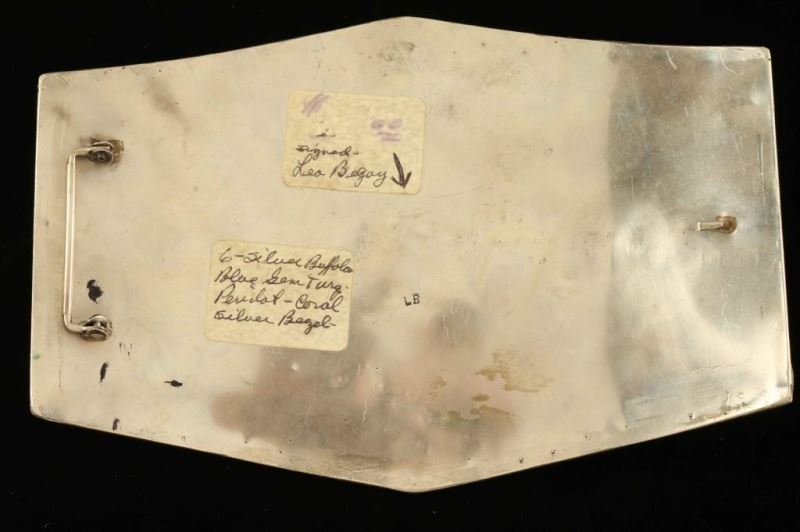 signed-
Leo Begay
6-Silver Buffalo
Blue Gem Turq-
Peridot-Coral
Silver Bezel-
LB